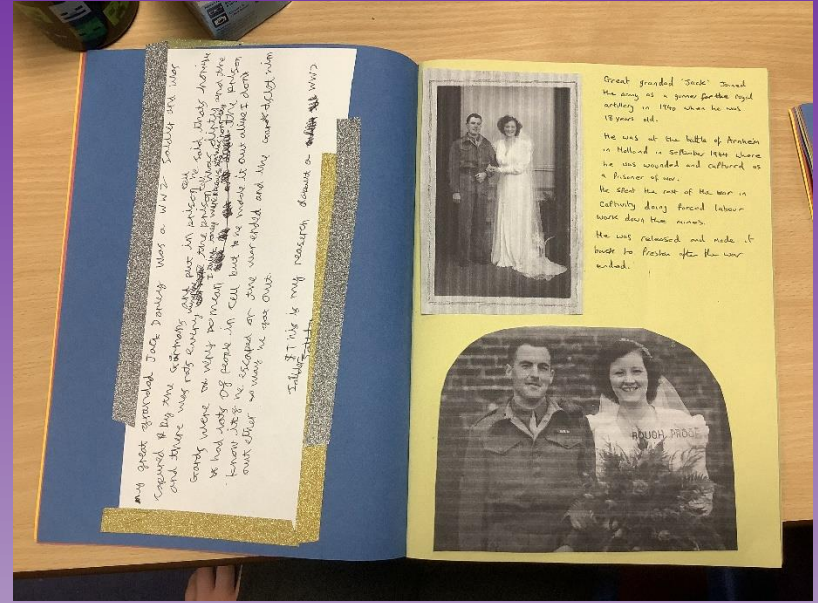 my great grandad Jack Donley was a WW2 Soldier and was
capured by the Germans and put in prison cell
and there was rats every the prison he said thats horrible
Gards were very mean
had lots of people in cell but he made it out alive I dont
know if he escaped or the war ended and the gards let him
out ether way he got out
This is my reaserch about a WW2
Great grandad 'Jack' Joined
the army as a gunner for the royal
artillery in 1940 when he was
18 years old.
He was at the battle of Arnhem
in Holland in September 1944 where
he was wounded and captured as
a Prisoner of war.
He spent the rest of the war in
captivity doing forced labour
work down the mines.
He was released and made it
back to Preston after the war
ended.
ROUGH PROOF